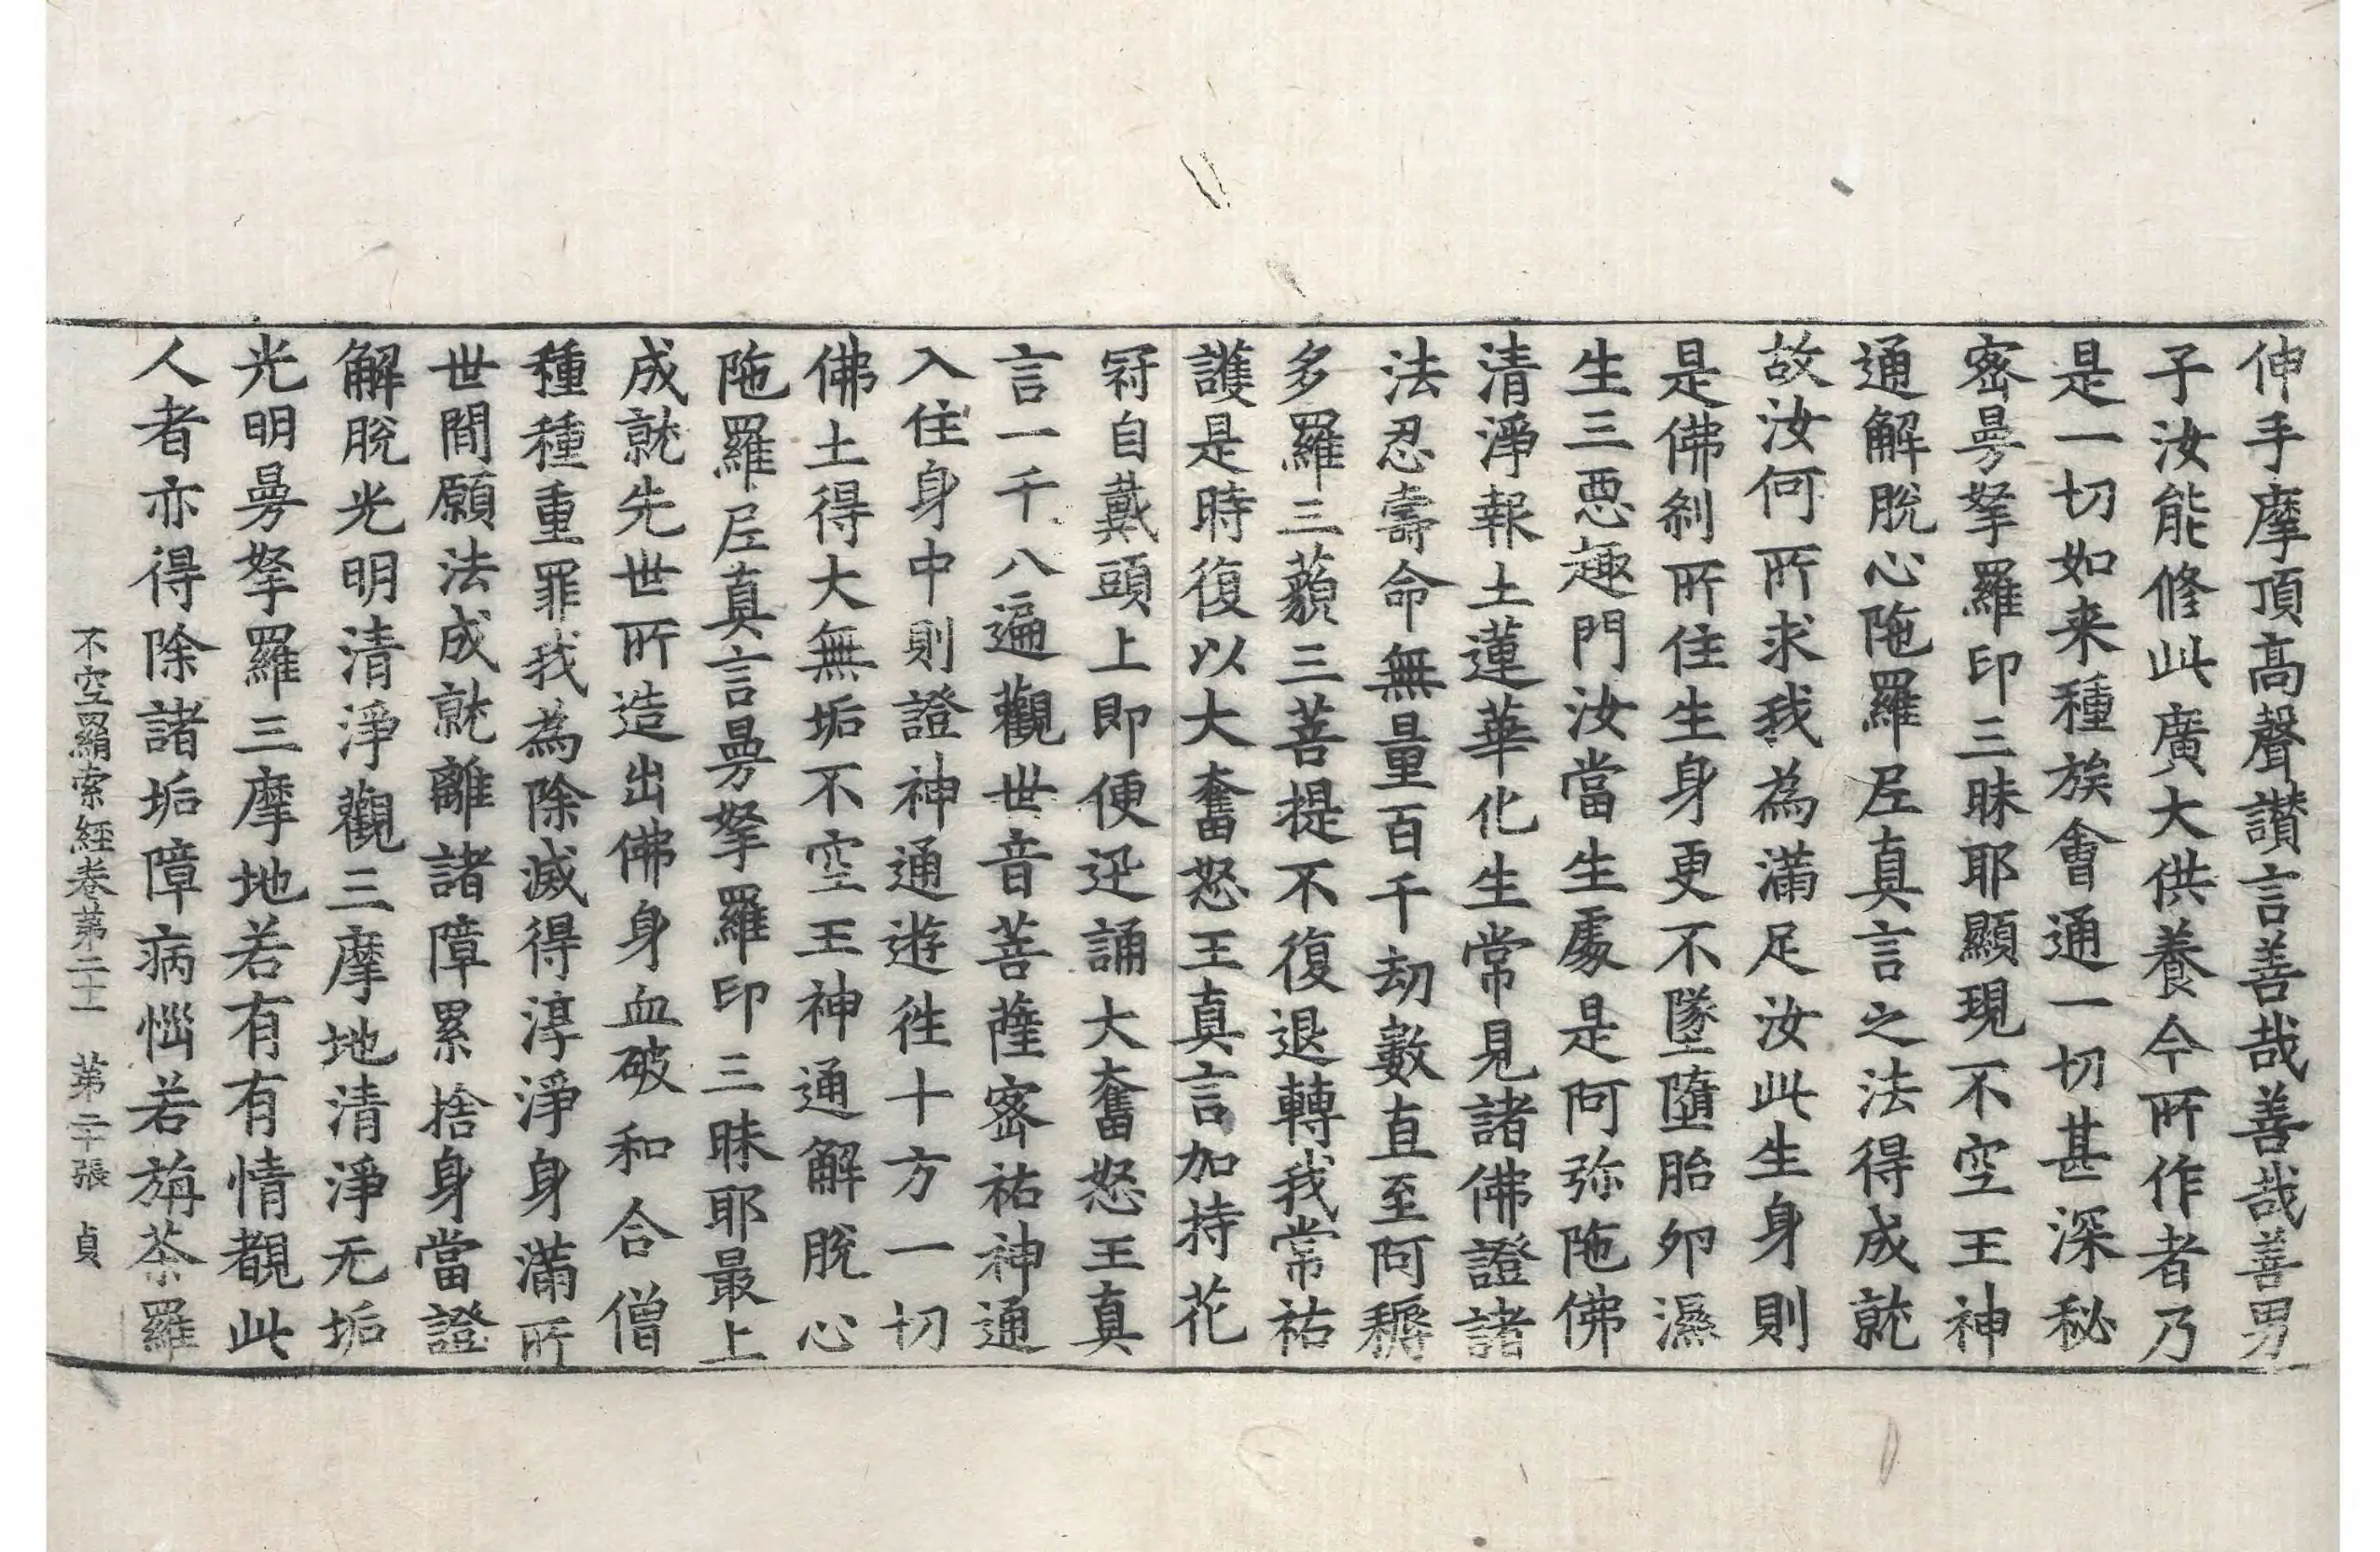 伸手摩頂高聲讃言善哉善哉善男
子汝能修此廣大供養今所作者乃
是一切如来種族會通一切甚深秘
密曼拏羅印三昧耶顯現不空王神
通解脫心陁羅尼真言之法得成就
故汝何所求我為滿足汝此生身則
是佛剎所住生身更不墜墮胎卵濕
生三惡趣門汝當生處是阿弥陁佛
清淨報土蓮華化生常見諸佛證諸
法忍壽命無量百千劫數直至阿耨
多羅三藐三菩提不復退轉我常祐
護是時復以大奮怒王真言加持花
冠自戴頭上即便迊誦大奮怒王真
言一千八遍觀世音菩薩密祐神通
入住身中則證神通遊徃十方一切
佛土得大無垢不空王神通解脫心
陁羅尼真言曼拏羅印三昧耶最上
成就先世所造出佛身血破和合僧
種種重罪我為除滅得淳淨身滿所
世間願法成就離諸障累捨身當證
解脫光明清淨觀三摩地清淨无垢
光明曼拏羅三摩地若有有情覩此
人者亦得除諸垢障病惱若旃荼羅
不空羂索經卷第二十一　第二十張　貞